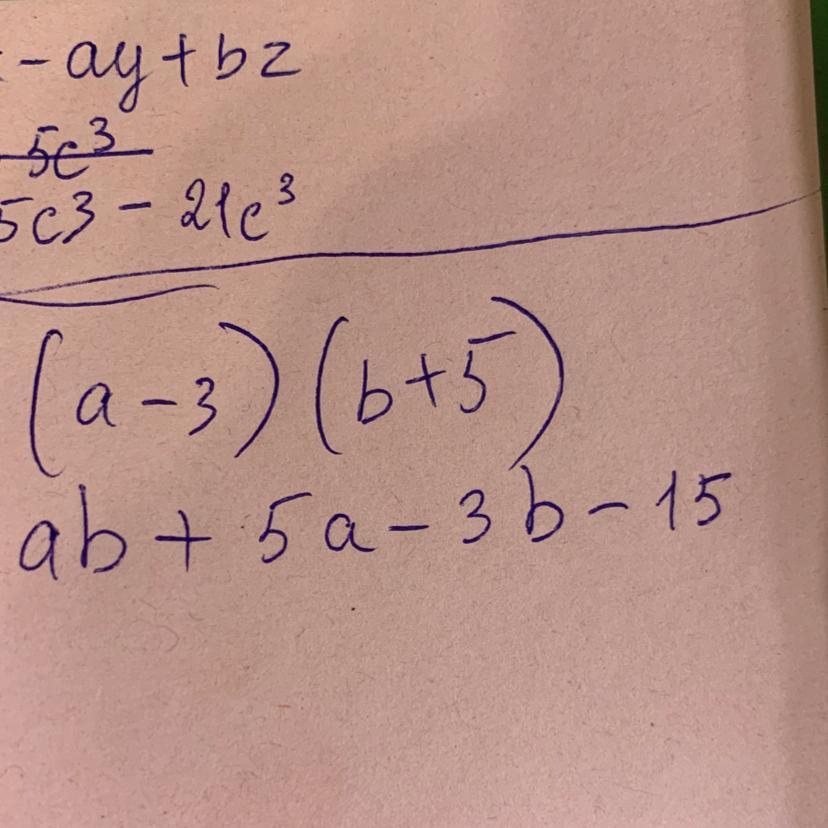 - ay + bz
5c³
5c3 - 21c³
(a - 3) (b + 5)
ab + 5a - 3b - 15